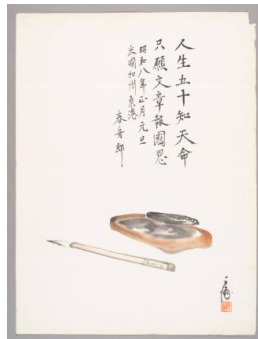 人生五十知天命
只願文章報國恩
昭和八年正月元旦
米國加州東港
春舟郎